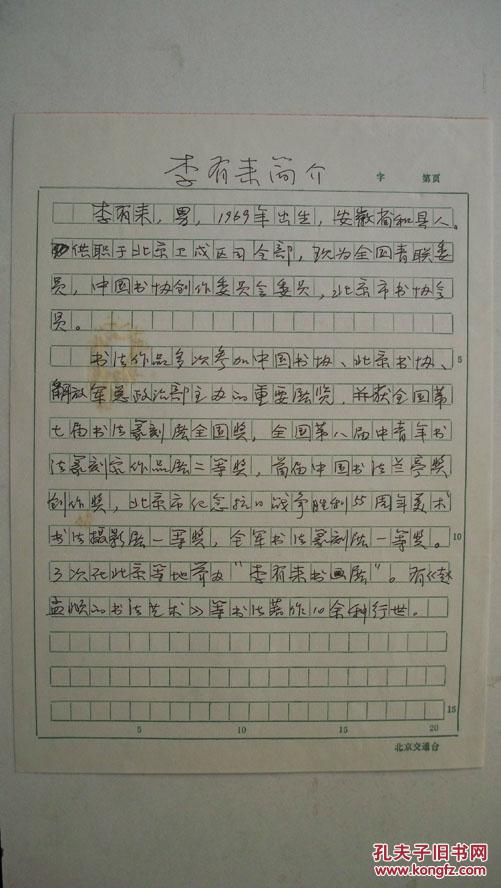 李有来简介
字 第页
李有来，男，1969年出生，安徽省和县人。
供职于北京卫戍区司令部，现为全国青联委
员，中国书协创作委员会委员，北京市书协会
员。
书法作品多次参加中国书协、北京书协、
5
解放军总政治部主办的重要展览，并获全国第
七届书法篆刻展全国奖，全国第八届中青年书
法篆刻家作品展二等奖，首届中国书法兰亭奖
创作奖，北京市纪念抗日战争胜利55周年美术
书法摄影展一等奖，全军书法篆刻展一等奖。
10
3次在北京等地举办“李有来书画展”。有《赵
孟頫的书法艺术》等书法著作10余种行世。
15
5 10 15 20
北京交通台
孔夫子旧书网
www.kongfz.com